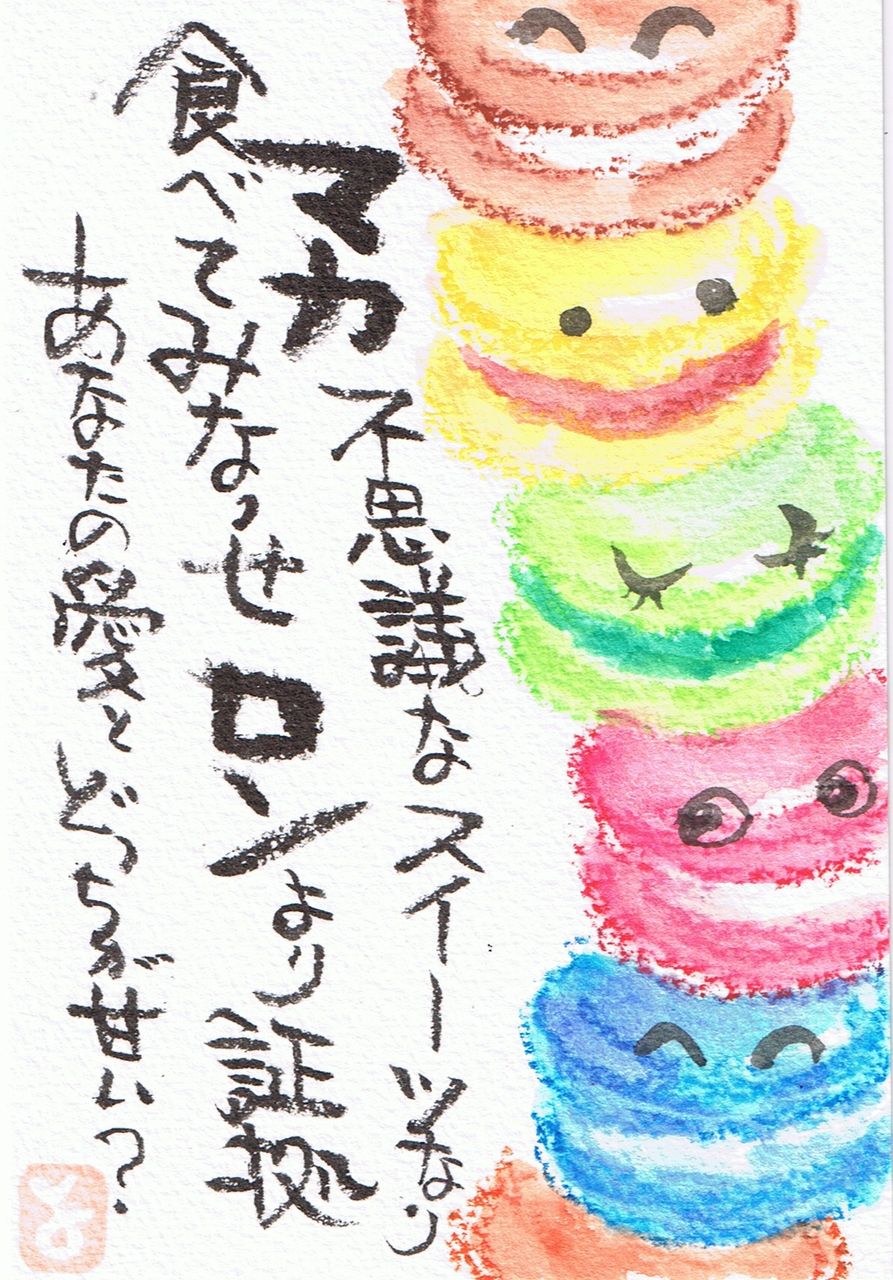 マカ不思議なスイーツなり
食べてみなっせロンより証拠
あなたの愛とどっちが甘い?